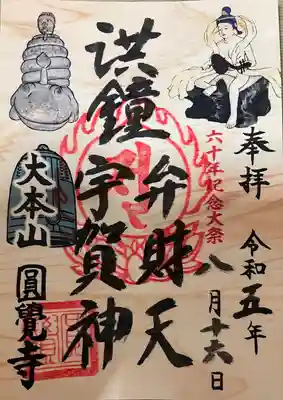 奉拝
令和五年
八月十六日
六十年記念大祭
弁財天
洪鐘
宇賀神
大本山
圓覺寺